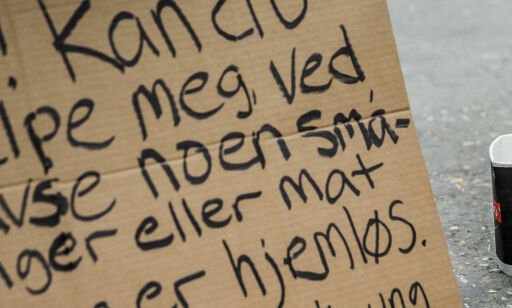 ! Kan du
ipe meg, ved
avse noen små-
nger eller mat
er hjemløs.
ung